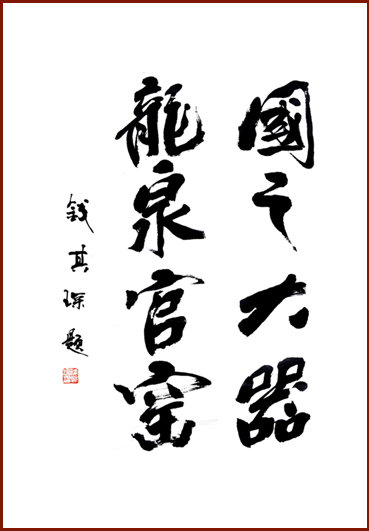 國之大器
龍泉官窑
钱其琛題